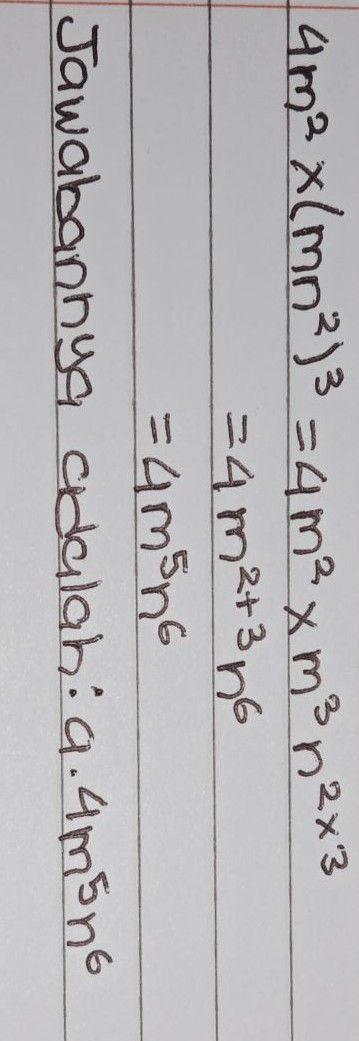 4m² x (mn²)³ = 4m² x m³ n²ˣ³
= 4m²⁺³n⁶
= 4m⁵n⁶
Jawabannya adalah : a. 4m⁵n⁶